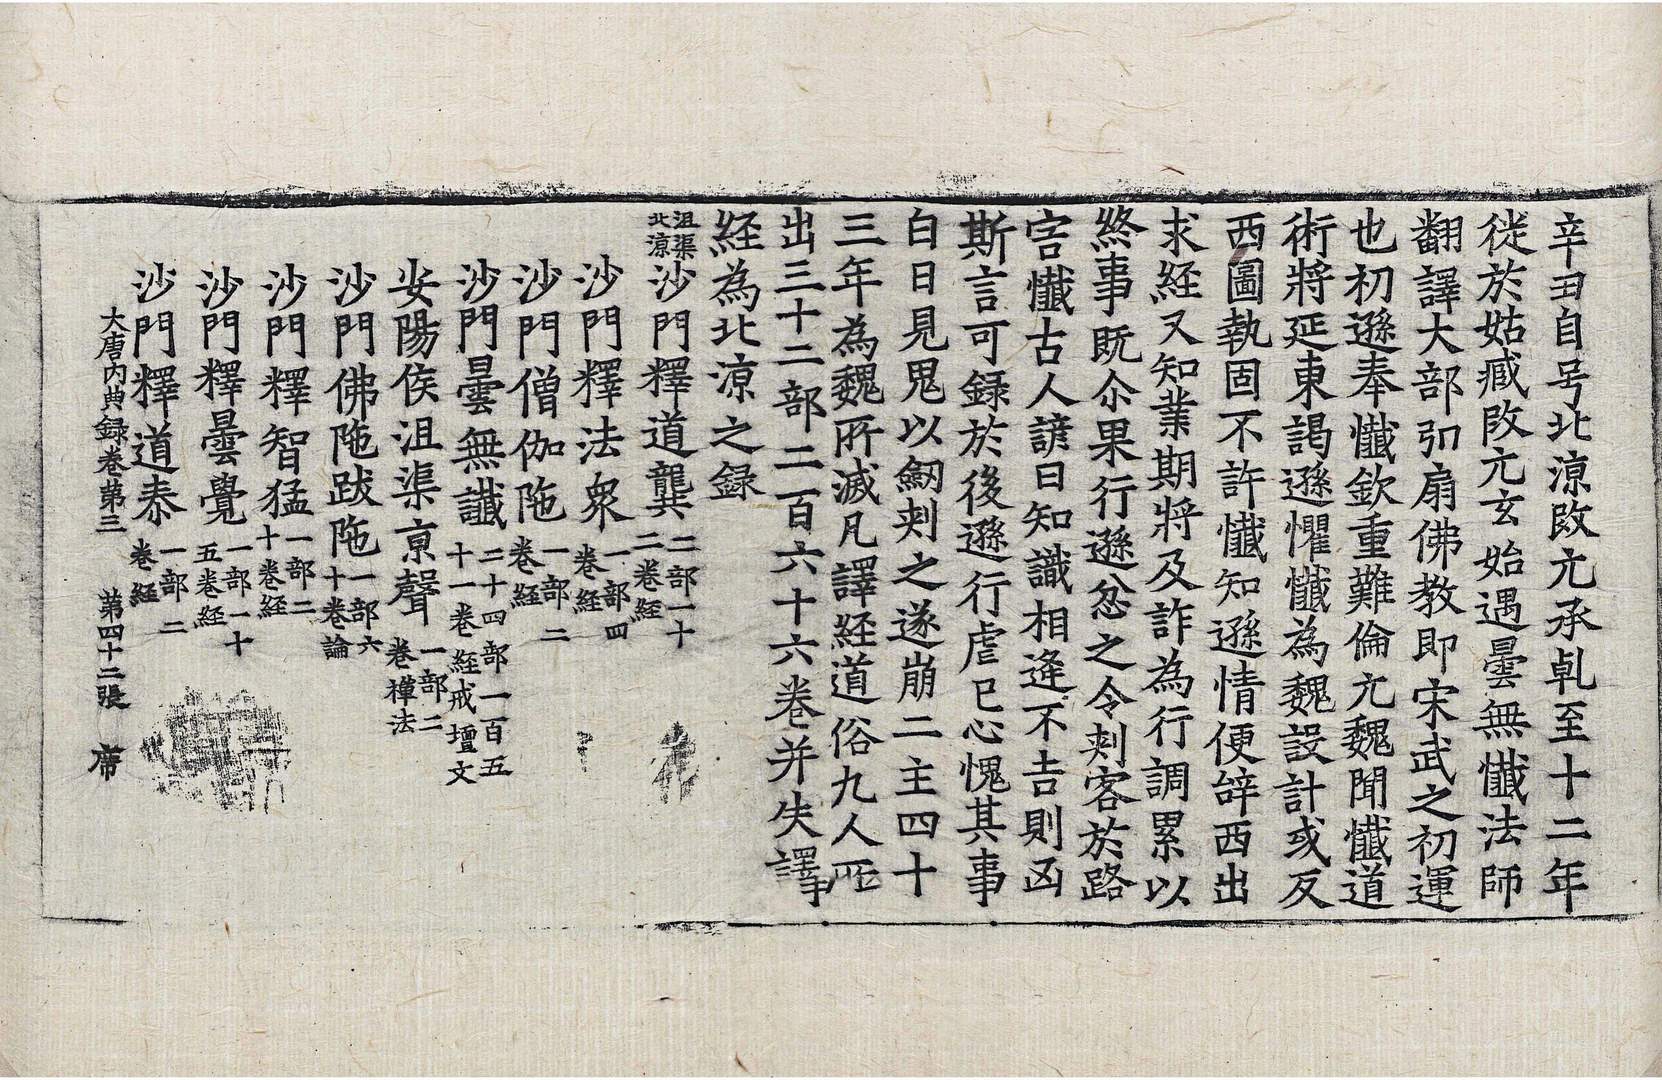 辛丑自号北涼改元承𠃵至十二年
從於姑臧改元玄始遇曇無懺法師
翻譯大部弘扇佛教即宋武之初運
也初遜奉懺欽重難倫元魏聞懺道
術將延東謁遜懼懺為魏設計或反
西圖執固不許懺知遜情便辝西出
求経又知業期將及詐為行調累以
終事既尒果行遜忿之令刾客於路
害懺古人諺曰知識相逢不吉則凶
斯言可録於後遜行虐已心愧其事
白日見鬼以劒刾之遂崩二主四十
三年為魏所滅凡譯経道俗九人所
出三十二部二百六十六卷并失譯
経為北涼之録
沮渠北涼沙門釋道龔二部一十二卷経
沙門釋法衆一部四卷経
沙門僧伽陁一部二卷経
沙門曇無讖二十四部一百五十一卷経戒壇文
安陽侯沮渠京聲一部二卷禪法
沙門佛陁跋陁一部六十卷論
沙門釋智猛一部二十卷経
沙門釋曇覺一部一十五卷経
沙門釋道泰一部二卷経
大唐内典録卷第三　第四十二張　席